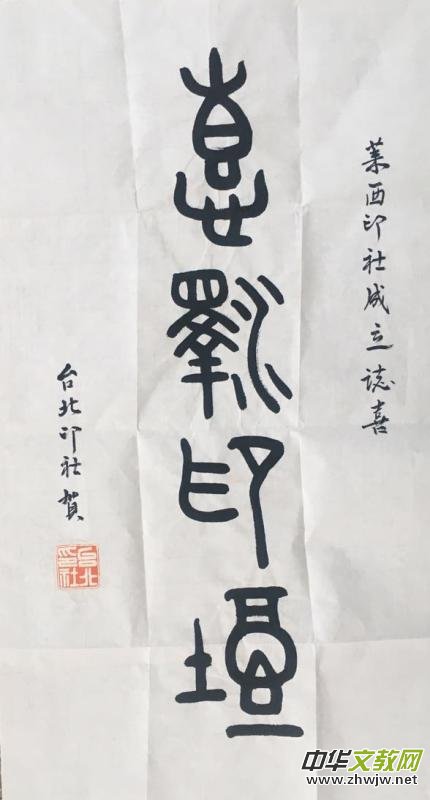 莱西印社成立誌喜
悳澤印壇
台北印社賀
台北印社
中华文教网
www.zhwjw.net